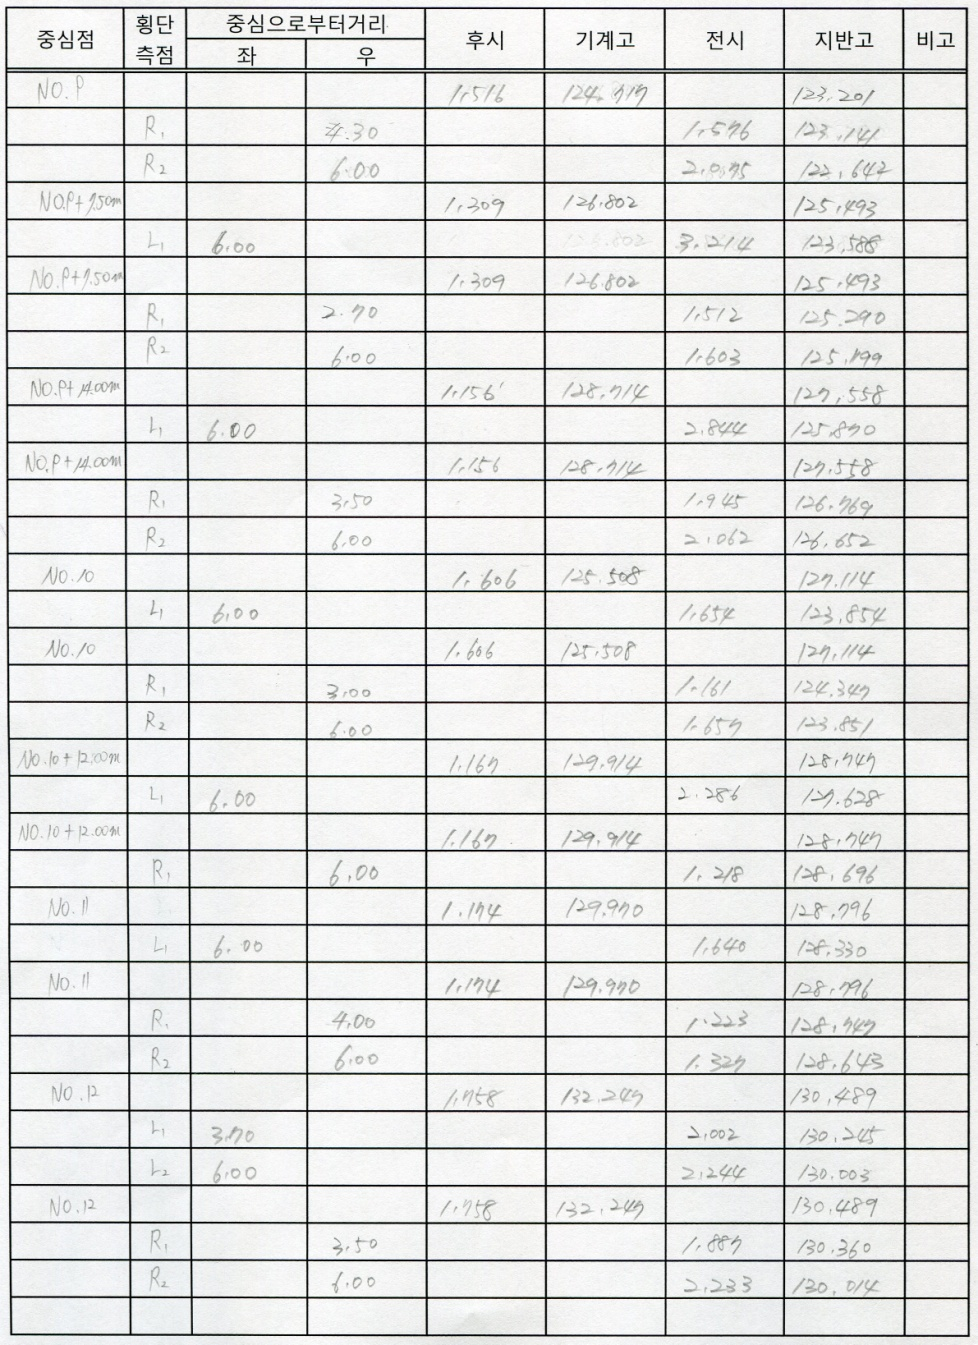 중심점 횡단측점 중심으로부터거리 후시 기계고 전시 지반고 비고
좌 우
NO.9 1.516 124.717 123.201
R1 4.30 1.576 123.141
R2 6.00 2.075 122.642
NO.9+7.50m 1.309 126.802 125.493
L1 6.00 3.214 123.588
NO.9+7.50m 1.309 126.802 125.493
R1 2.70 1.512 125.290
R2 6.00 1.603 125.199
NO.9+14.00m 1.156 128.714 127.558
L1 6.00 2.844 125.870
NO.9+14.00m 1.156 128.714 127.558
R1 3.50 1.945 126.769
R2 6.00 2.062 126.652
NO.10 1.606 125.508 127.114
L1 6.00 1.654 123.854
NO.10 1.606 125.508 127.114
R1 3.00 1.161 124.347
R2 6.00 1.657 123.851
NO.10+12.00m 1.167 129.914 128.747
L1 6.00 2.286 127.628
NO.10+12.00m 1.167 129.914 128.747
R1 6.00 1.218 128.696
NO.11 1.174 129.970 128.796
L1 6.00 1.640 128.330
NO.11 1.174 129.970 128.796
R1 4.00 1.223 128.747
R2 6.00 1.327 128.643
NO.12 1.758 132.247 130.489
L1 3.70 2.002 130.245
L2 6.00 2.244 130.003
NO.12 1.758 132.247 130.489
R1 3.50 1.887 130.360
R2 6.00 2.233 130.014